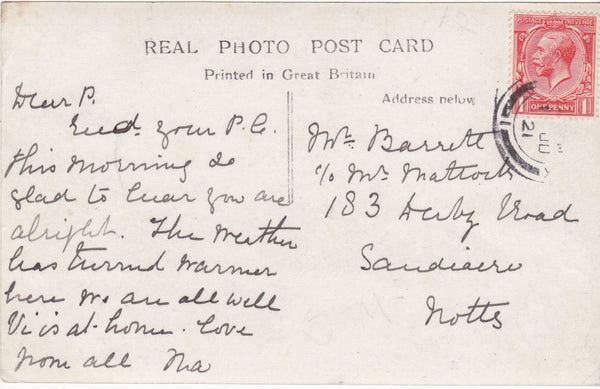 REAL PHOTO POST CARD
Printed in Great Britain
Address below
POSTAGE REVENUE
ONE PENNY
JU
21
Dear P.
your P.C.
this morning &
glad to hear you are
alright. The weather
has turned warmer
here We are all well
Vi is at home. Love
from all Ma
Mr Barrett
c/o Mr Mattock
183 Derby Road
Sandiacre
Notts